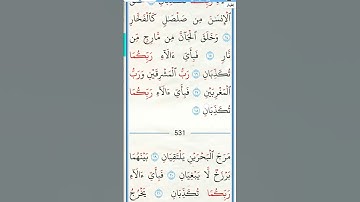 ٱلْإِنسَٰنَ مِن صَلْصَٰلٍ كَٱلْفَخَّارِ
وَخَلَقَ ٱلْجَآنَّ مِن مَّارِجٍ مِّن
نَّارٍ فَبِأَيِّ ءَالَآءِ رَبِّكُمَا
تُكَذِّبَانِ رَبُّ ٱلْمَشْرِقَيْنِ وَرَبُّ
ٱلْمَغْرِبَيْنِ فَبِأَيِّ ءَالَآءِ رَبِّكُمَا
تُكَذِّبَانِ
531
مَرَجَ ٱلْبَحْرَيْنِ يَلْتَقِيَانِ بَيْنَهُمَا
بَرْزَخٌ لَّا يَبْغِيَانِ فَبِأَيِّ ءَالَآءِ
رَبِّكُمَا تُكَذِّبَانِ يَخْرُجُ